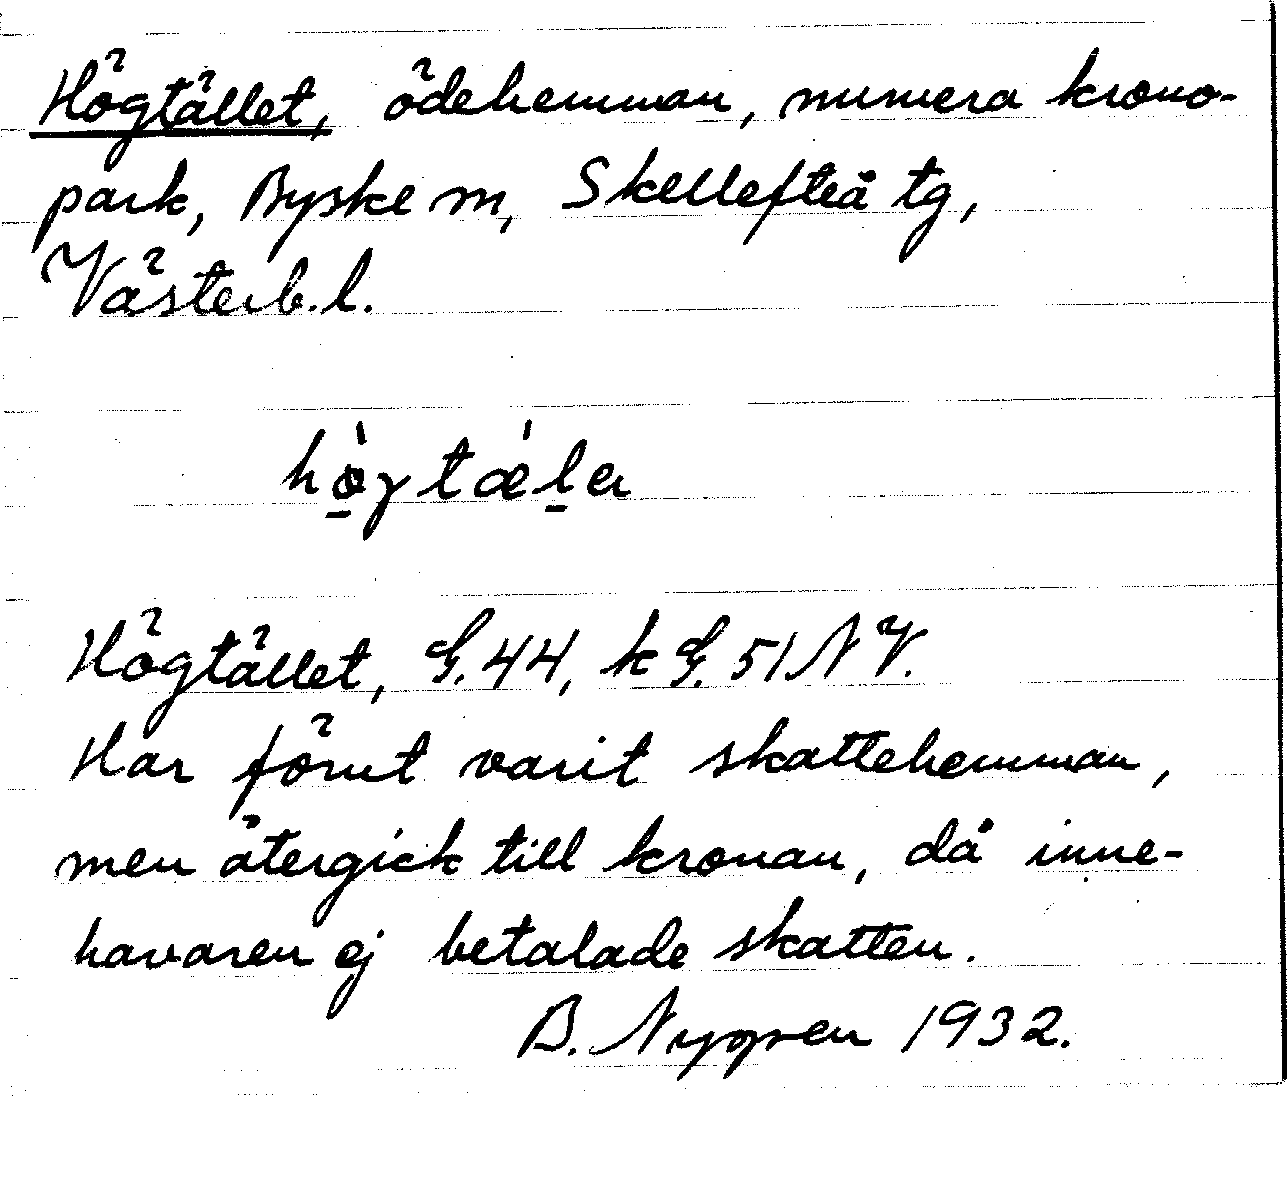 Högtället, ödehemman, numera krono-
park, Byske sn, Skellefteå tg,
Västerb. l.
hö̲̀gtæ̀l̲a
Högtället, G. 44, k G. 51 N V.
Har förut varit skattehemman,
men återgick till kronan, då inne-
havaren ej betalade skatten.
B. Nygren 1932.